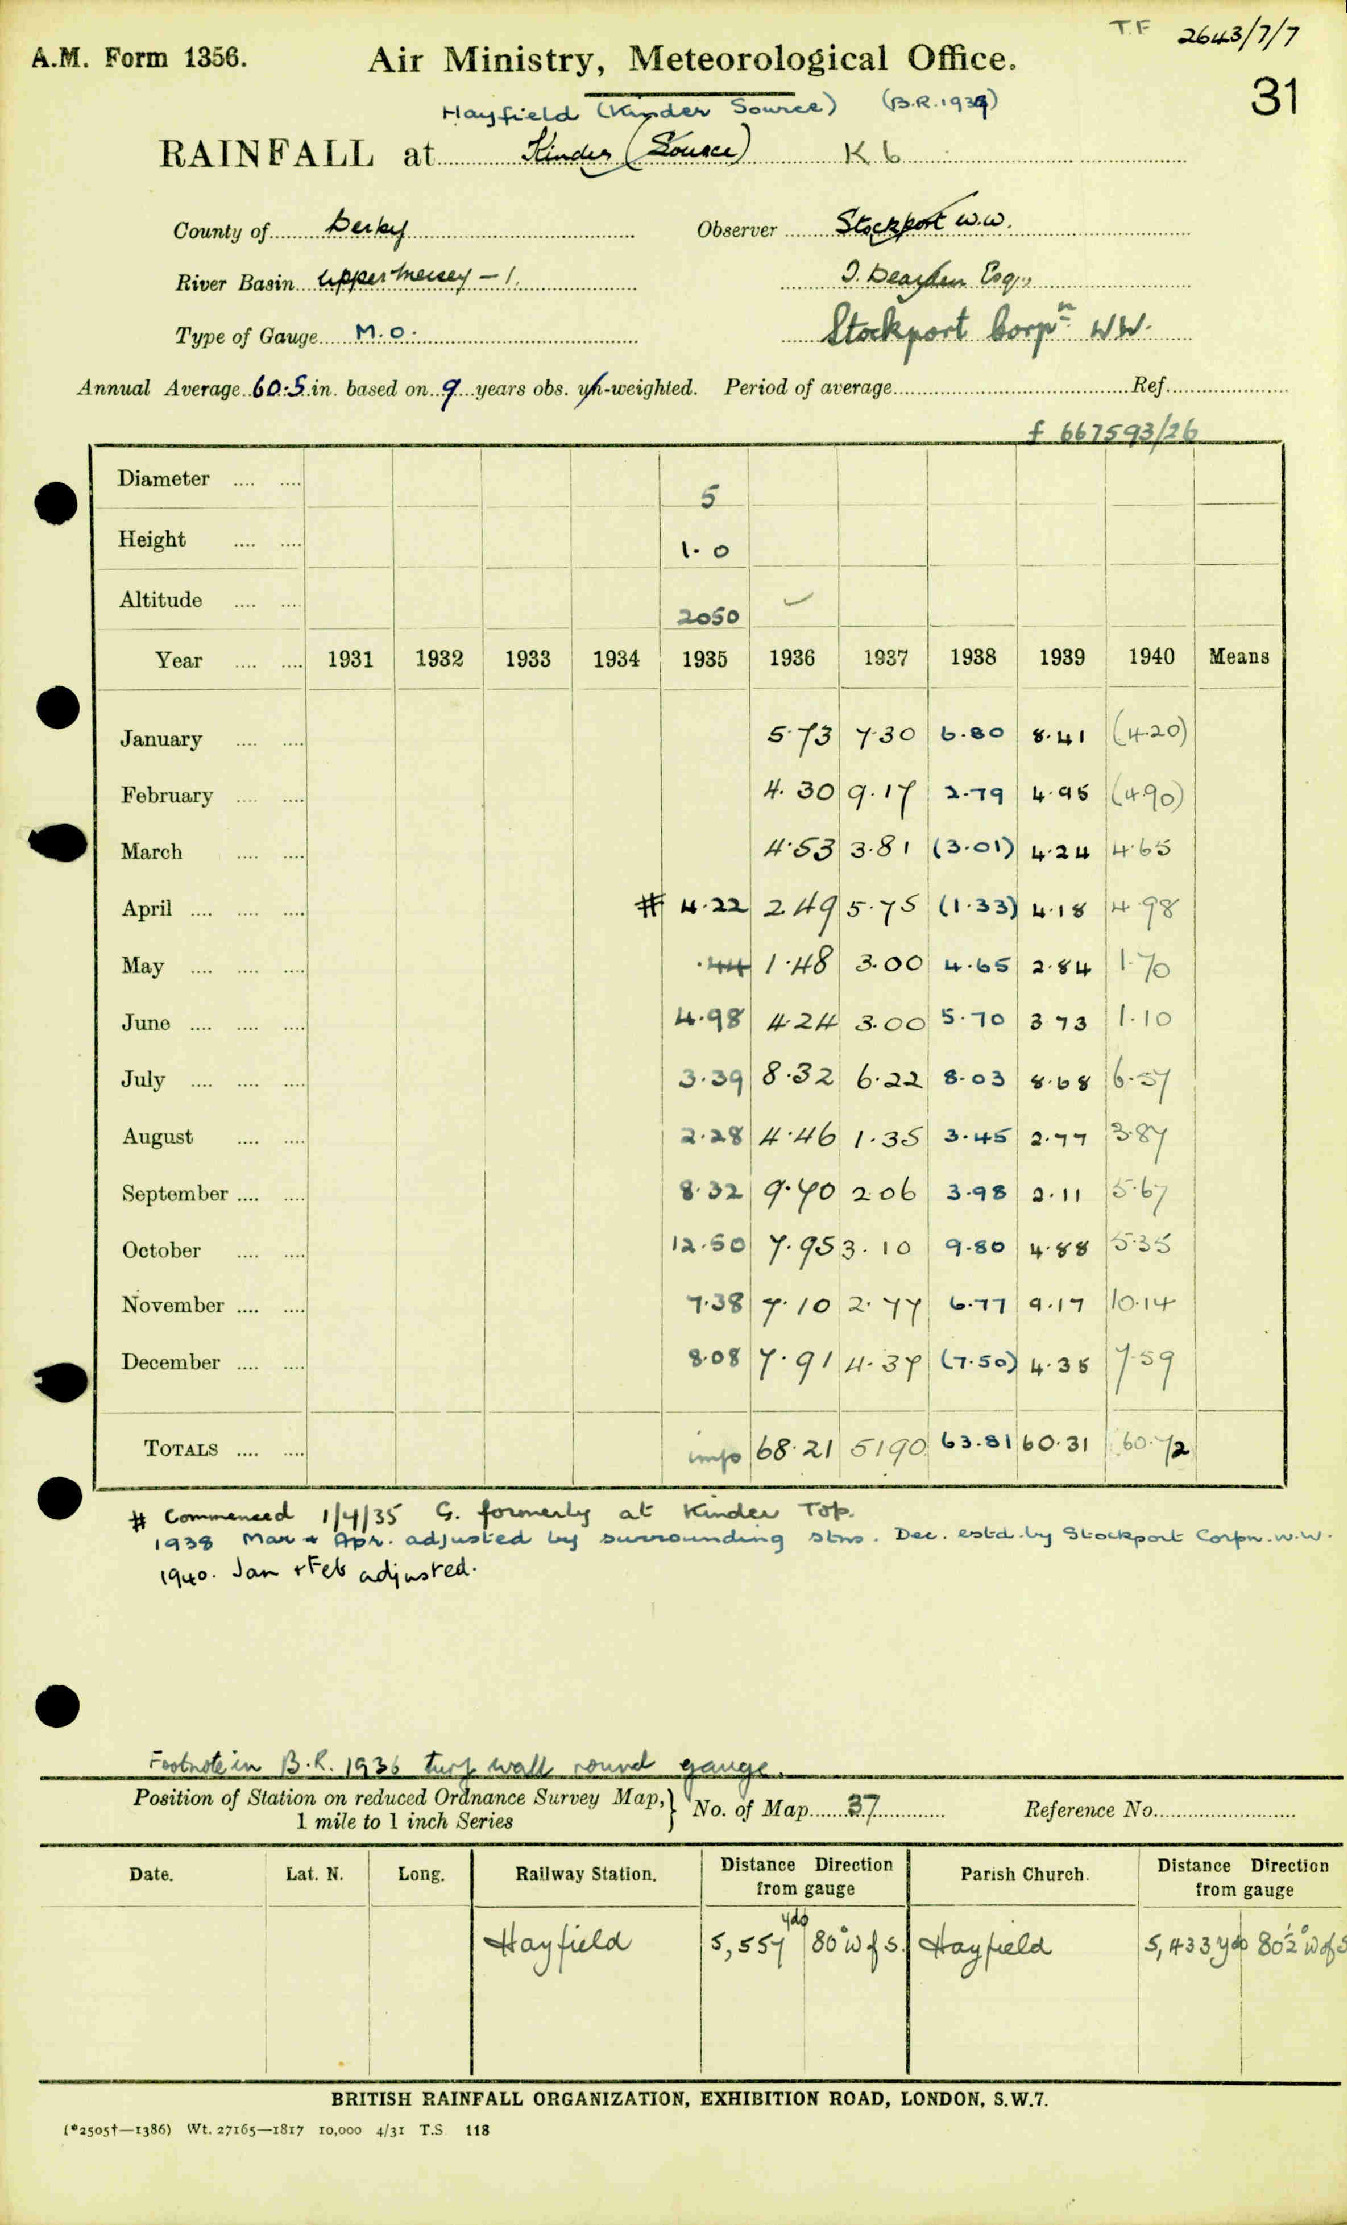 T.F 2643/7/7
A.M. Form 1356. Air Ministry, Meteorological Office.
31
Hayfield (Kinder Source) (B.R. 1939)
RAINFALL at Kinder (Source) K6
County of Derby Observer Stockport W.W.
River Basin Upper Mersey - 1. Esq.,
Type of Gauge M.O. Stockport Corpn. W.W.
Annual Average 60.5 in. based on 9 years obs. un-weighted. Period of average Ref.
f 667593/26
Diameter .... .... 5
Height .... .... 1.0
Altitude .... .... 2050 ✓
Year .... .... 1931 1932 1933 1934 1935 1936 1937 1938 1939 1940 Means
January .... .... 5.73 7.30 6.80 8.41 (4.20)
February .... .... 4.30 9.17 2.79 4.95 (4.90)
March .... .... 4.53 3.81 (3.01) 4.24 4.65
April .... .... .... # 4.22 2.49 5.75 (1.33) 4.18 4.98
May .... .... .... .44 1.48 3.00 4.65 2.84 1.70
June .... .... .... 4.98 4.24 3.00 5.70 3.73 1.10
July .... .... .... 3.39 8.32 6.22 8.03 8.68 6.57
August .... .... 2.28 4.46 1.35 3.45 2.77 3.87
September .... .... 8.32 9.70 2.06 3.98 2.11 5.67
October .... .... 12.50 7.95 3.10 9.80 4.88 5.35
November .... .... 7.38 7.10 2.77 6.77 9.17 10.14
December .... .... 8.08 7.91 4.37 (7.50) 4.35 7.59
TOTALS .... .... imp 68.21 51.90 63.81 60.31 60.72
# Commenced 1/4/35 G. formerly at Kinder Top.
1938 Mar & Apr. adjusted by surrounding stns. Dec. estd. by Stockport Corpn. W.W.
1940. Jan & Feb adjusted.
Footnote in B.R. 1936 turf wall round gauge.
Position of Station on reduced Ordnance Survey Map, 1 mile to 1 inch Series } No. of Map 37 Reference No.
Date. Lat. N. Long. Railway Station. Distance Direction from gauge Parish Church. Distance Direction from gauge
Hayfield 5,557 yds 80° W of S. Hayfield 5,433 yds 80½° W of S
BRITISH RAINFALL ORGANIZATION, EXHIBITION ROAD, LONDON, S.W.7.
(*2505†—1386) Wt. 27165—1817 10,000 4/31 T.S. 118